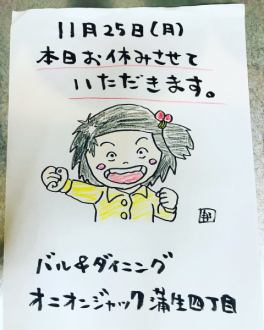 11月25日(月)
本日お休みさせて
いただきます。
バル&ダイニング
オニオンジャック 蒲生四丁目